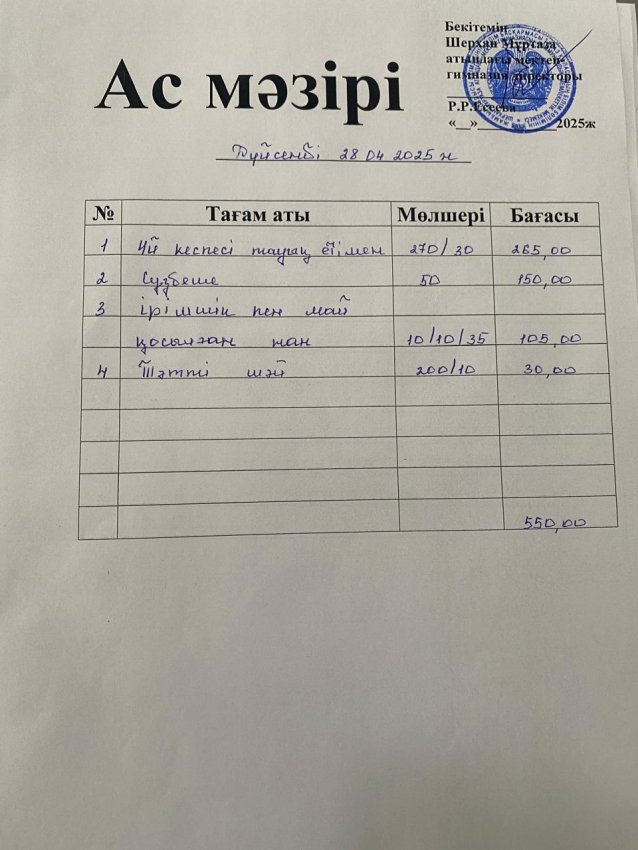 Бекітемін
Шерхан Мұртаза
атындағы мектеп-
гимназия директоры
Р.Р.Есеева
«__»____________2025ж
Ас мәзірі
Дүйсенбі 28 04 2025 ж
№ Тағам аты Мөлшері Бағасы
1 Үй кеспесі тауық етімен 270/30 265,00
2 Сүзбеше 50 150,00
3 ірімшік пен май
қосылған нан 10/10/35 105,00
4 Тәтті шәй 200/10 30,00
550,00